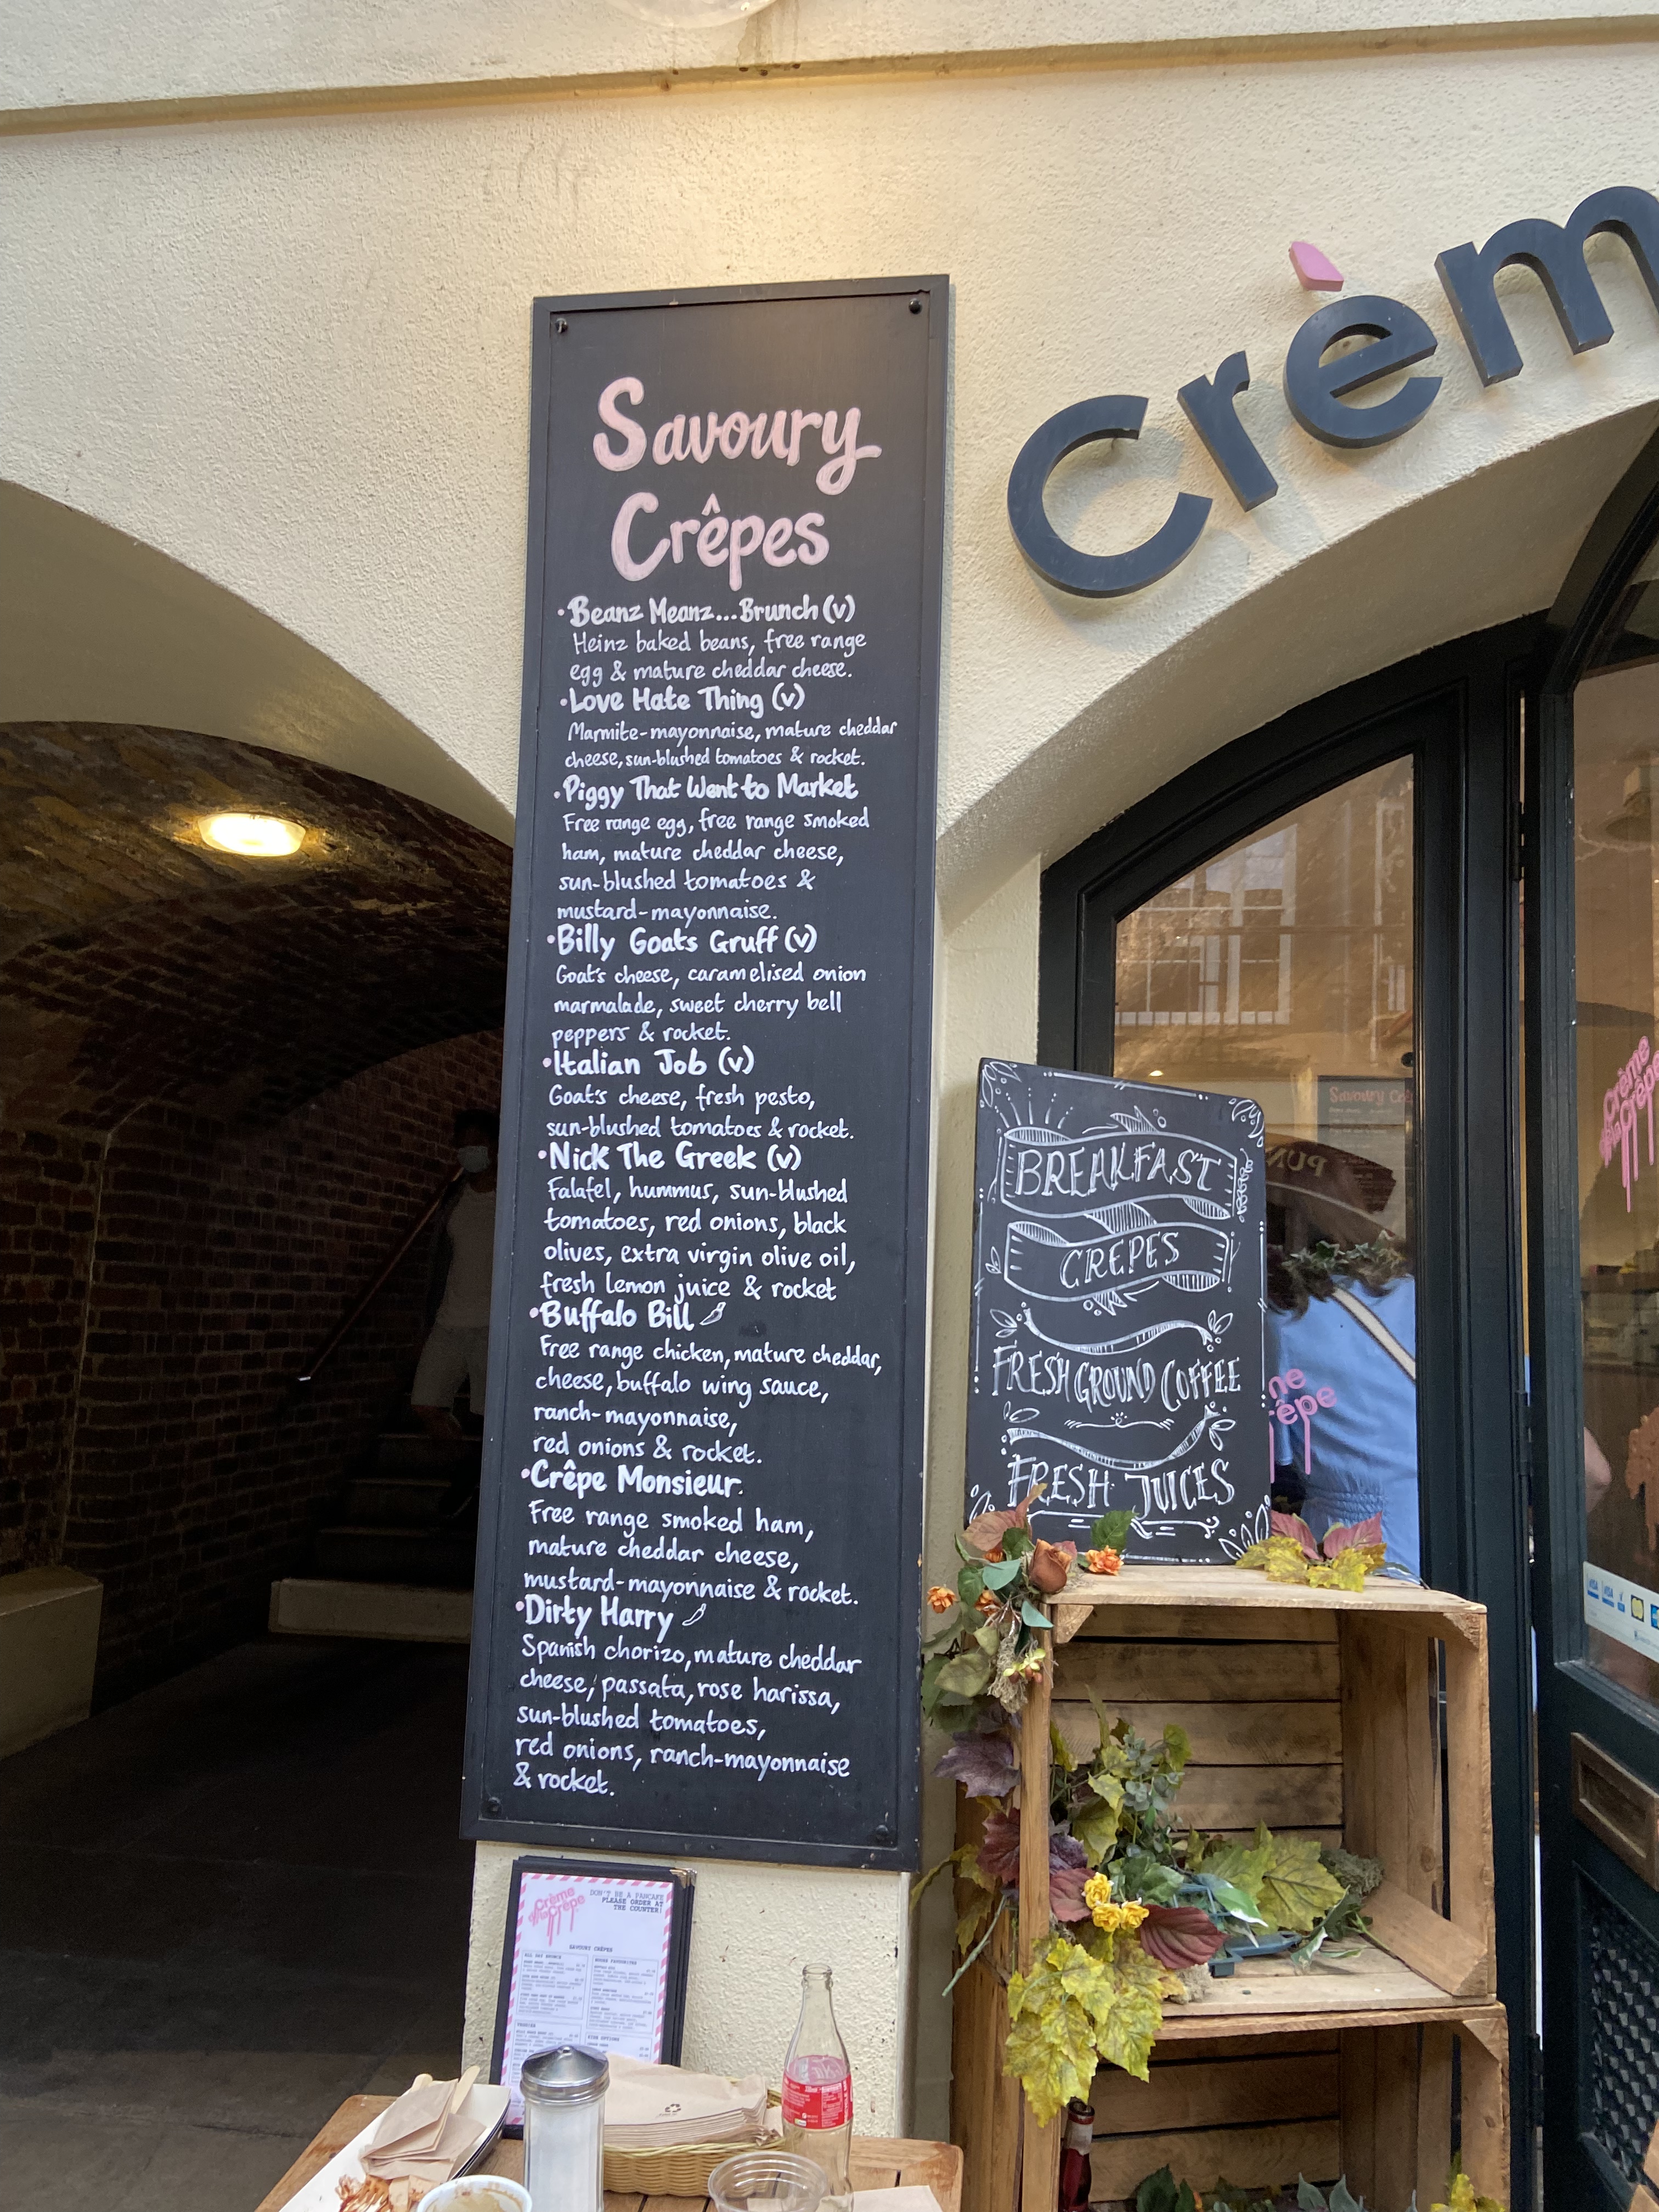 Savoury
Crêpes
• Beanz Meanz... Brunch (v)
Heinz baked beans, free range
egg & mature cheddar cheese.
• Love Hate Thing (v)
Marmite-mayonnaise, mature cheddar
cheese, sun-blushed tomatoes & rocket.
• Piggy That Went to Market
Free range egg, free range smoked
ham, mature cheddar cheese,
sun-blushed tomatoes &
mustard-mayonnaise.
• Billy Goats Gruff (v)
Goat's cheese, caramelised onion
marmalade, sweet cherry bell
peppers & rocket.
• Italian Job (v)
Goat's cheese, fresh pesto,
sun-blushed tomatoes & rocket.
• Nick The Greek (v)
Falafel, hummus, sun-blushed
tomatoes, red onions, black
olives, extra virgin olive oil,
fresh lemon juice & rocket
• Buffalo Bill
Free range chicken, mature cheddar,
cheese, buffalo wing sauce,
ranch-mayonnaise,
red onions & rocket.
• Crêpe Monsieur.
Free range smoked ham,
mature cheddar cheese,
mustard-mayonnaise & rocket.
• Dirty Harry
Spanish chorizo, mature cheddar
cheese, passata, rose harissa,
sun-blushed tomatoes,
red onions, ranch-mayonnaise
& rocket.
Crèm
BREAKFAST
CREPES
FRESH GROUND COFFEE
FRESH JUICES
Savoury
ne
rêpe
Crème
Crêpe
VISA
VISA
Crème
Crêpe
DON'T BE A PANCAKE
PLEASE ORDER AT
THE COUNTER!
SAVOURY CRÊPES